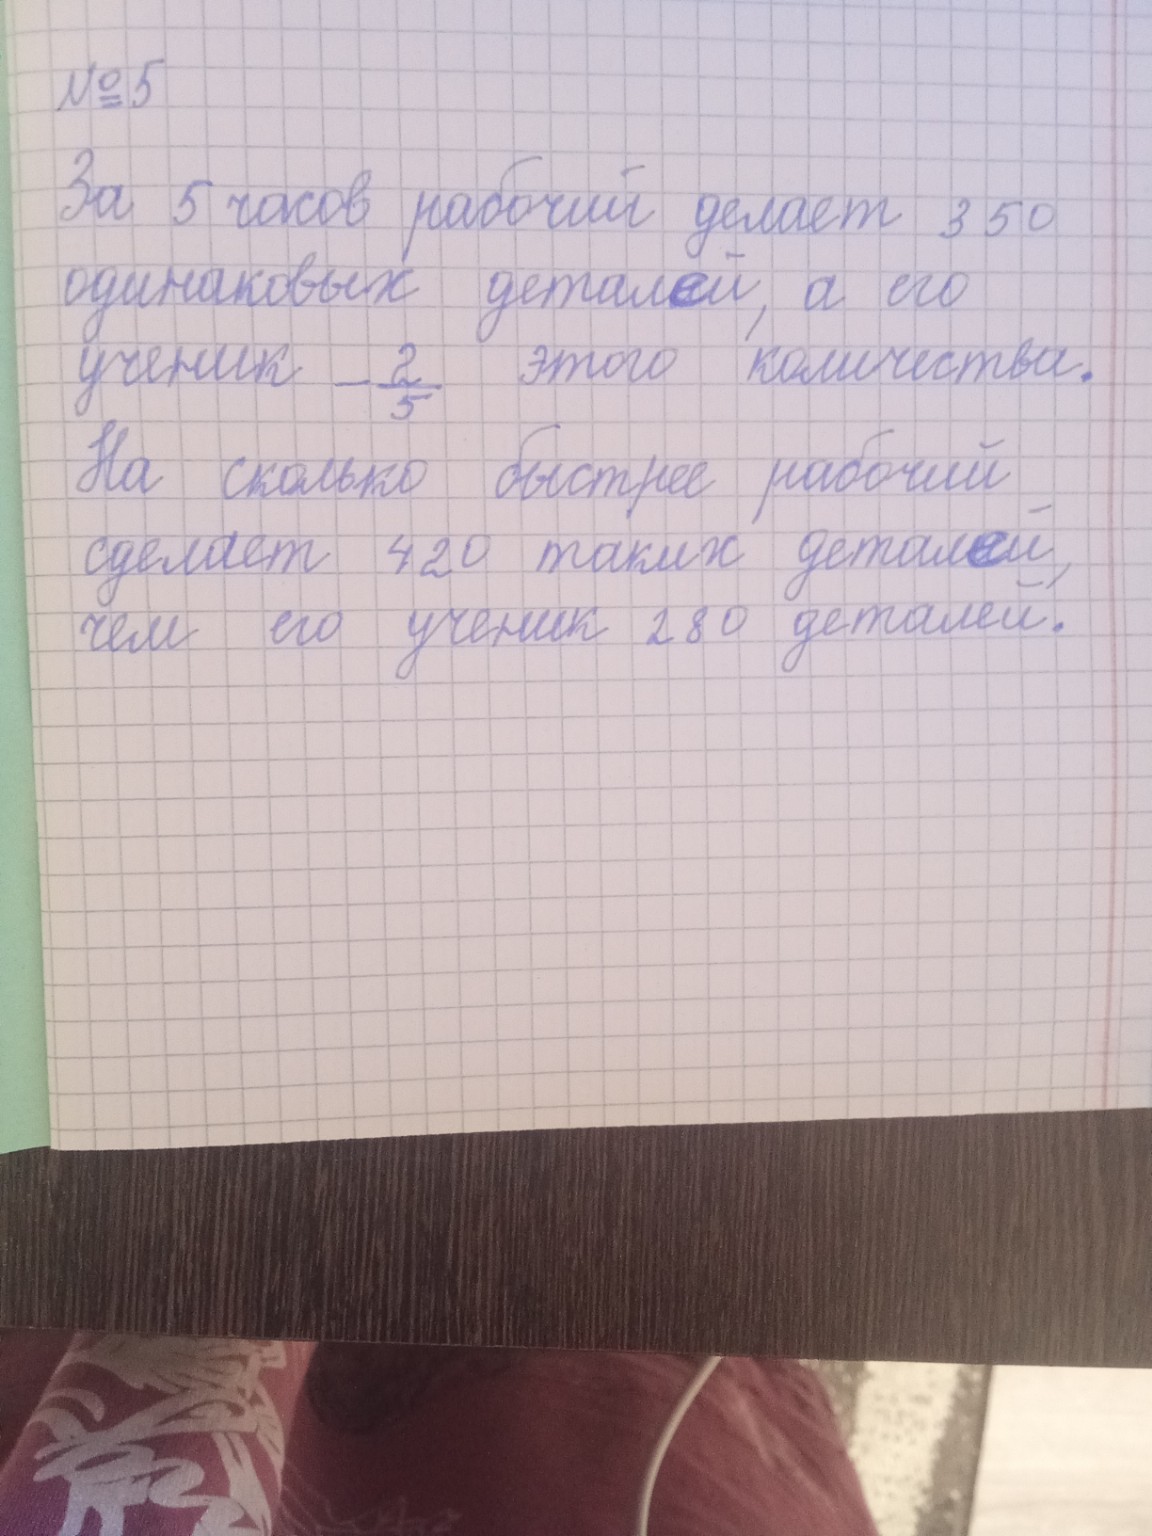 №5
За 5 часов рабочий делает 350
одинаковых деталей, а его
ученик - 2/5 этого количества.
На сколько быстрее рабочий
сделает 420 таких деталей,
чем его ученик 280 деталей.